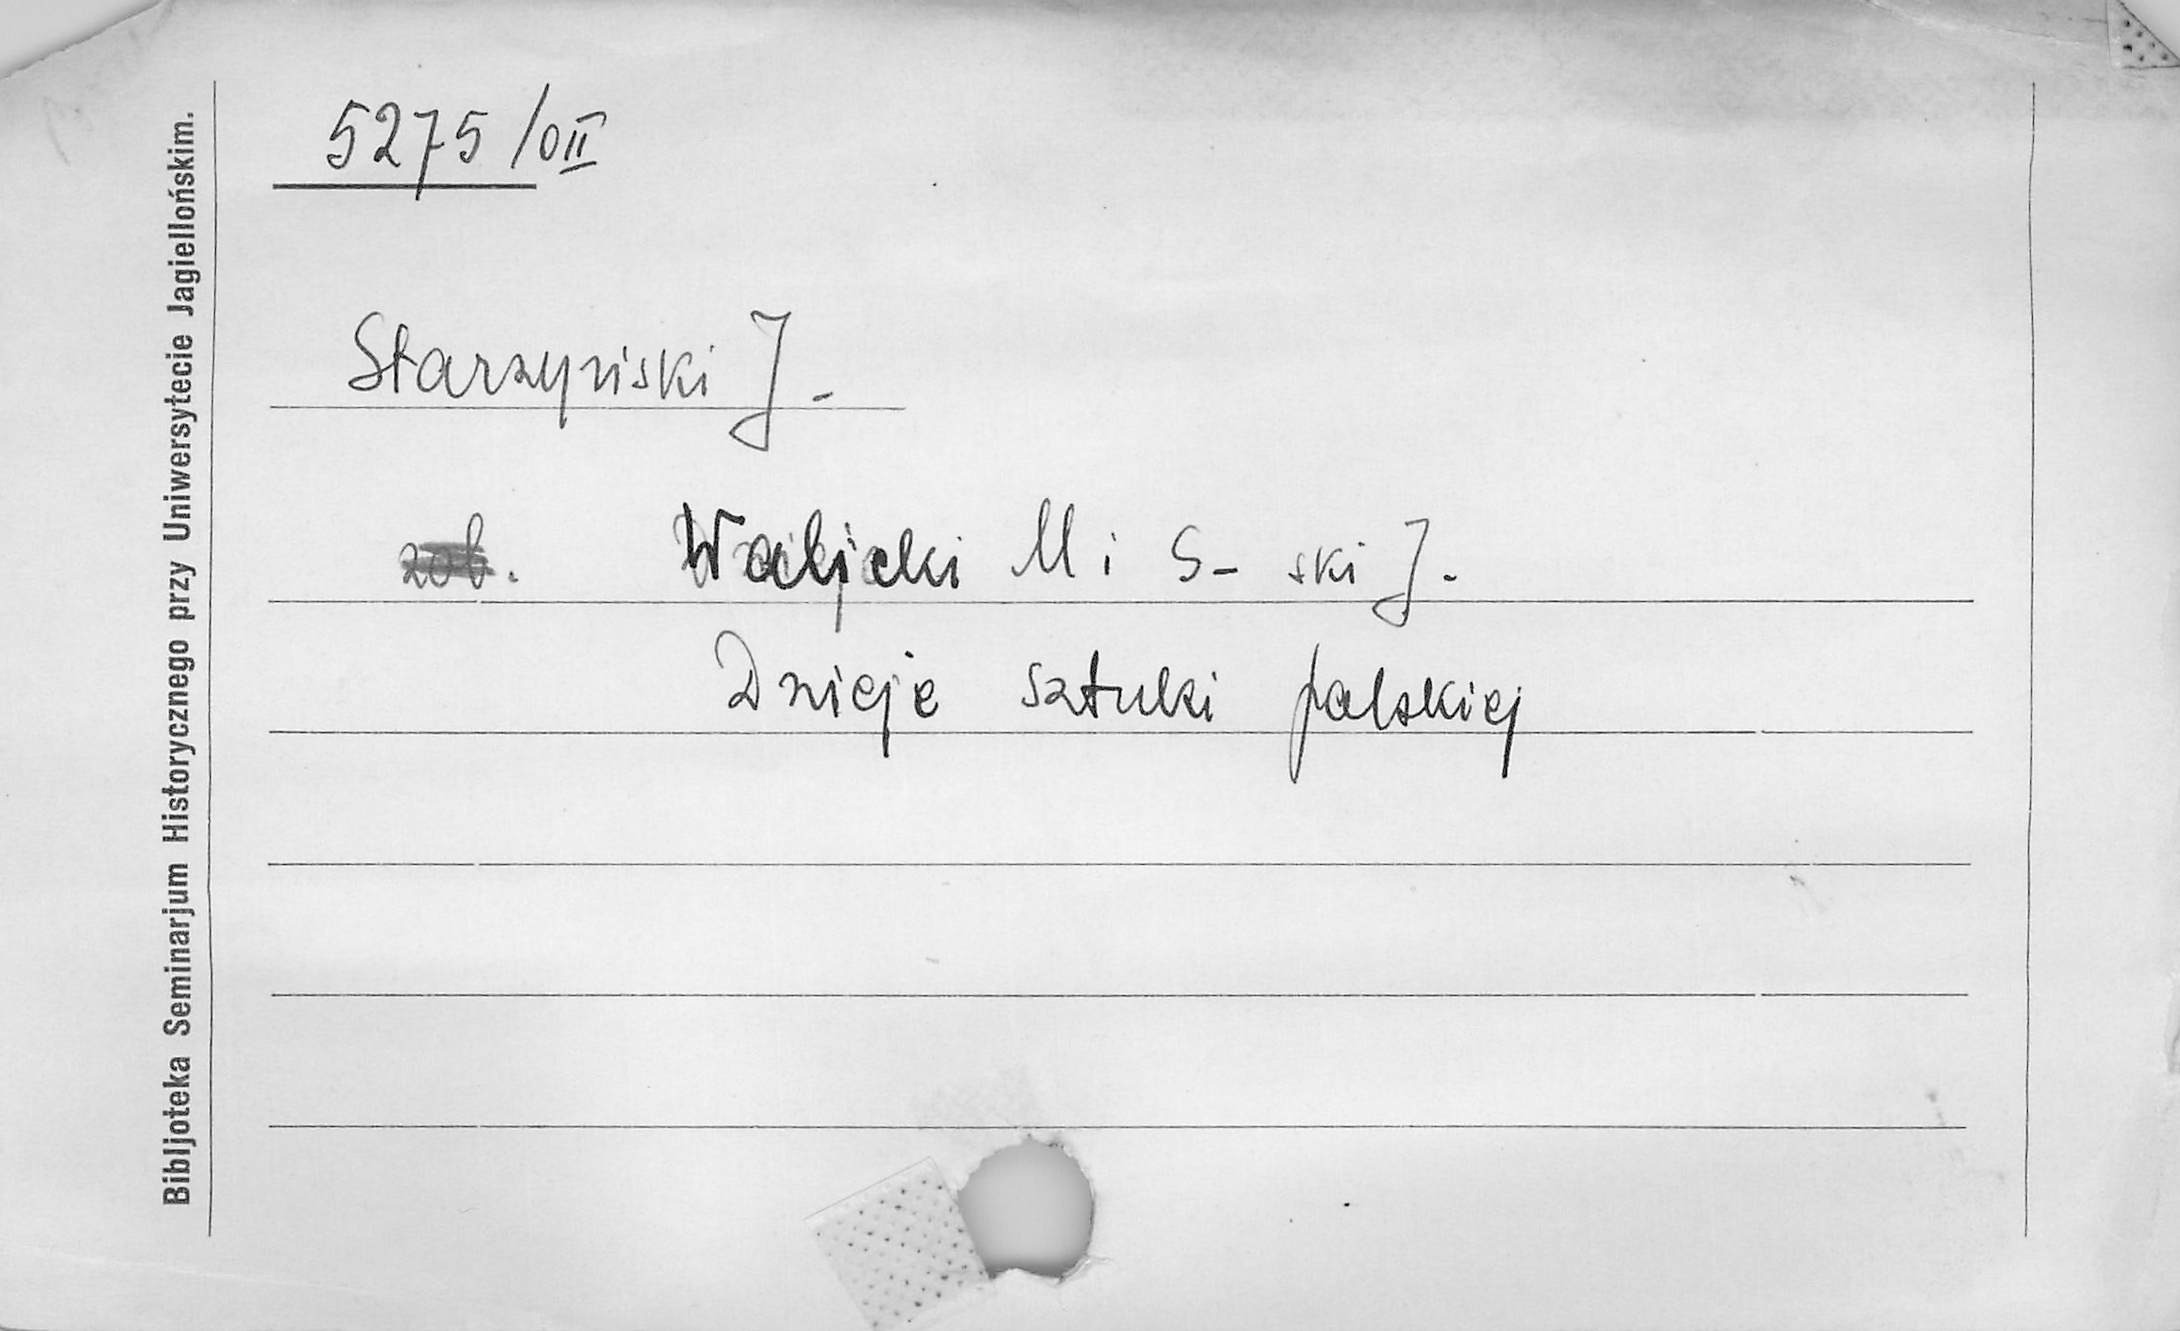 5275/0II
Starzyński J.
zob. Walicki M i S-ski J.
Dzieje sztuki polskiej
Bibljoteka Seminarjum Historycznego przy Uniwersytecie Jagiellońskim.